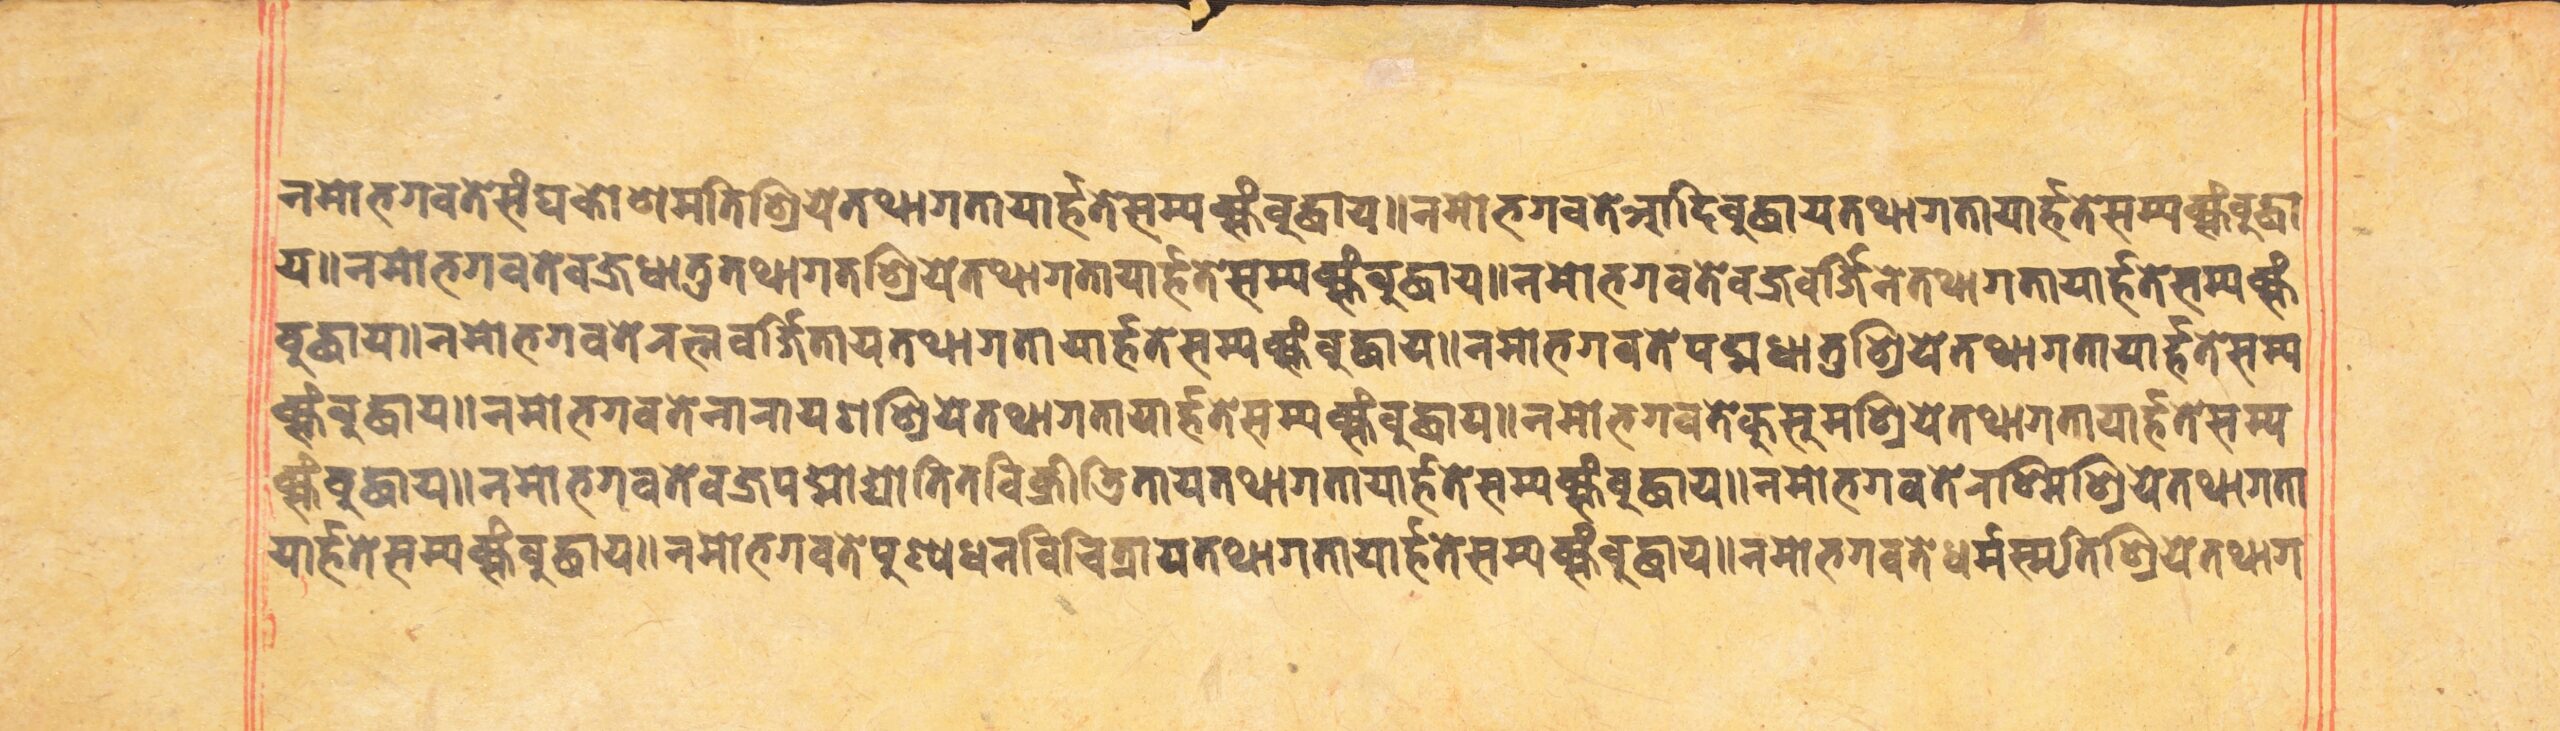 नमोभगवतेसंघकोशमतिश्रियेतथागतायार्हतेसम्यक्संबुद्धाय॥नमोभगवतेआदिबुद्धायतथागतायार्हतेसम्यक्संबुद्धा
य॥नमोभगवतेवज्रधातुतथागतश्रियेतथागतायार्हतेसम्यक्संबुद्धाय॥नमोभगवतेवज्रवर्जिनेतथागतायार्हतेसम्यक्सं
बुद्धाय॥नमोभगवतेरत्नवर्जितायतथागतायार्हतेसम्यक्संबुद्धाय॥नमोभगवतेपद्मधातुश्रियेतथागतायार्हतेसम्य
क्संबुद्धाय॥नमोभगवतेनारायणश्रियेतथागतायार्हतेसम्यक्संबुद्धाय॥नमोभगवतेकुसूमश्रियेतथागतायार्हतेसम्य
क्संबुद्धाय॥नमोभगवतेवज्रपद्मोद्योतितविक्रीडितायतथागतायार्हतेसम्यक्संबुद्धाय॥नमोभगवतेरश्मिश्रियेतथागता
यार्हतेसम्यक्संबुद्धाय॥नमोभगवतेपुण्यधनविचित्रायतथागतायार्हतेसम्यक्संबुद्धाय॥नमोभगवतेधर्मस्मृतिश्रियेतथाग